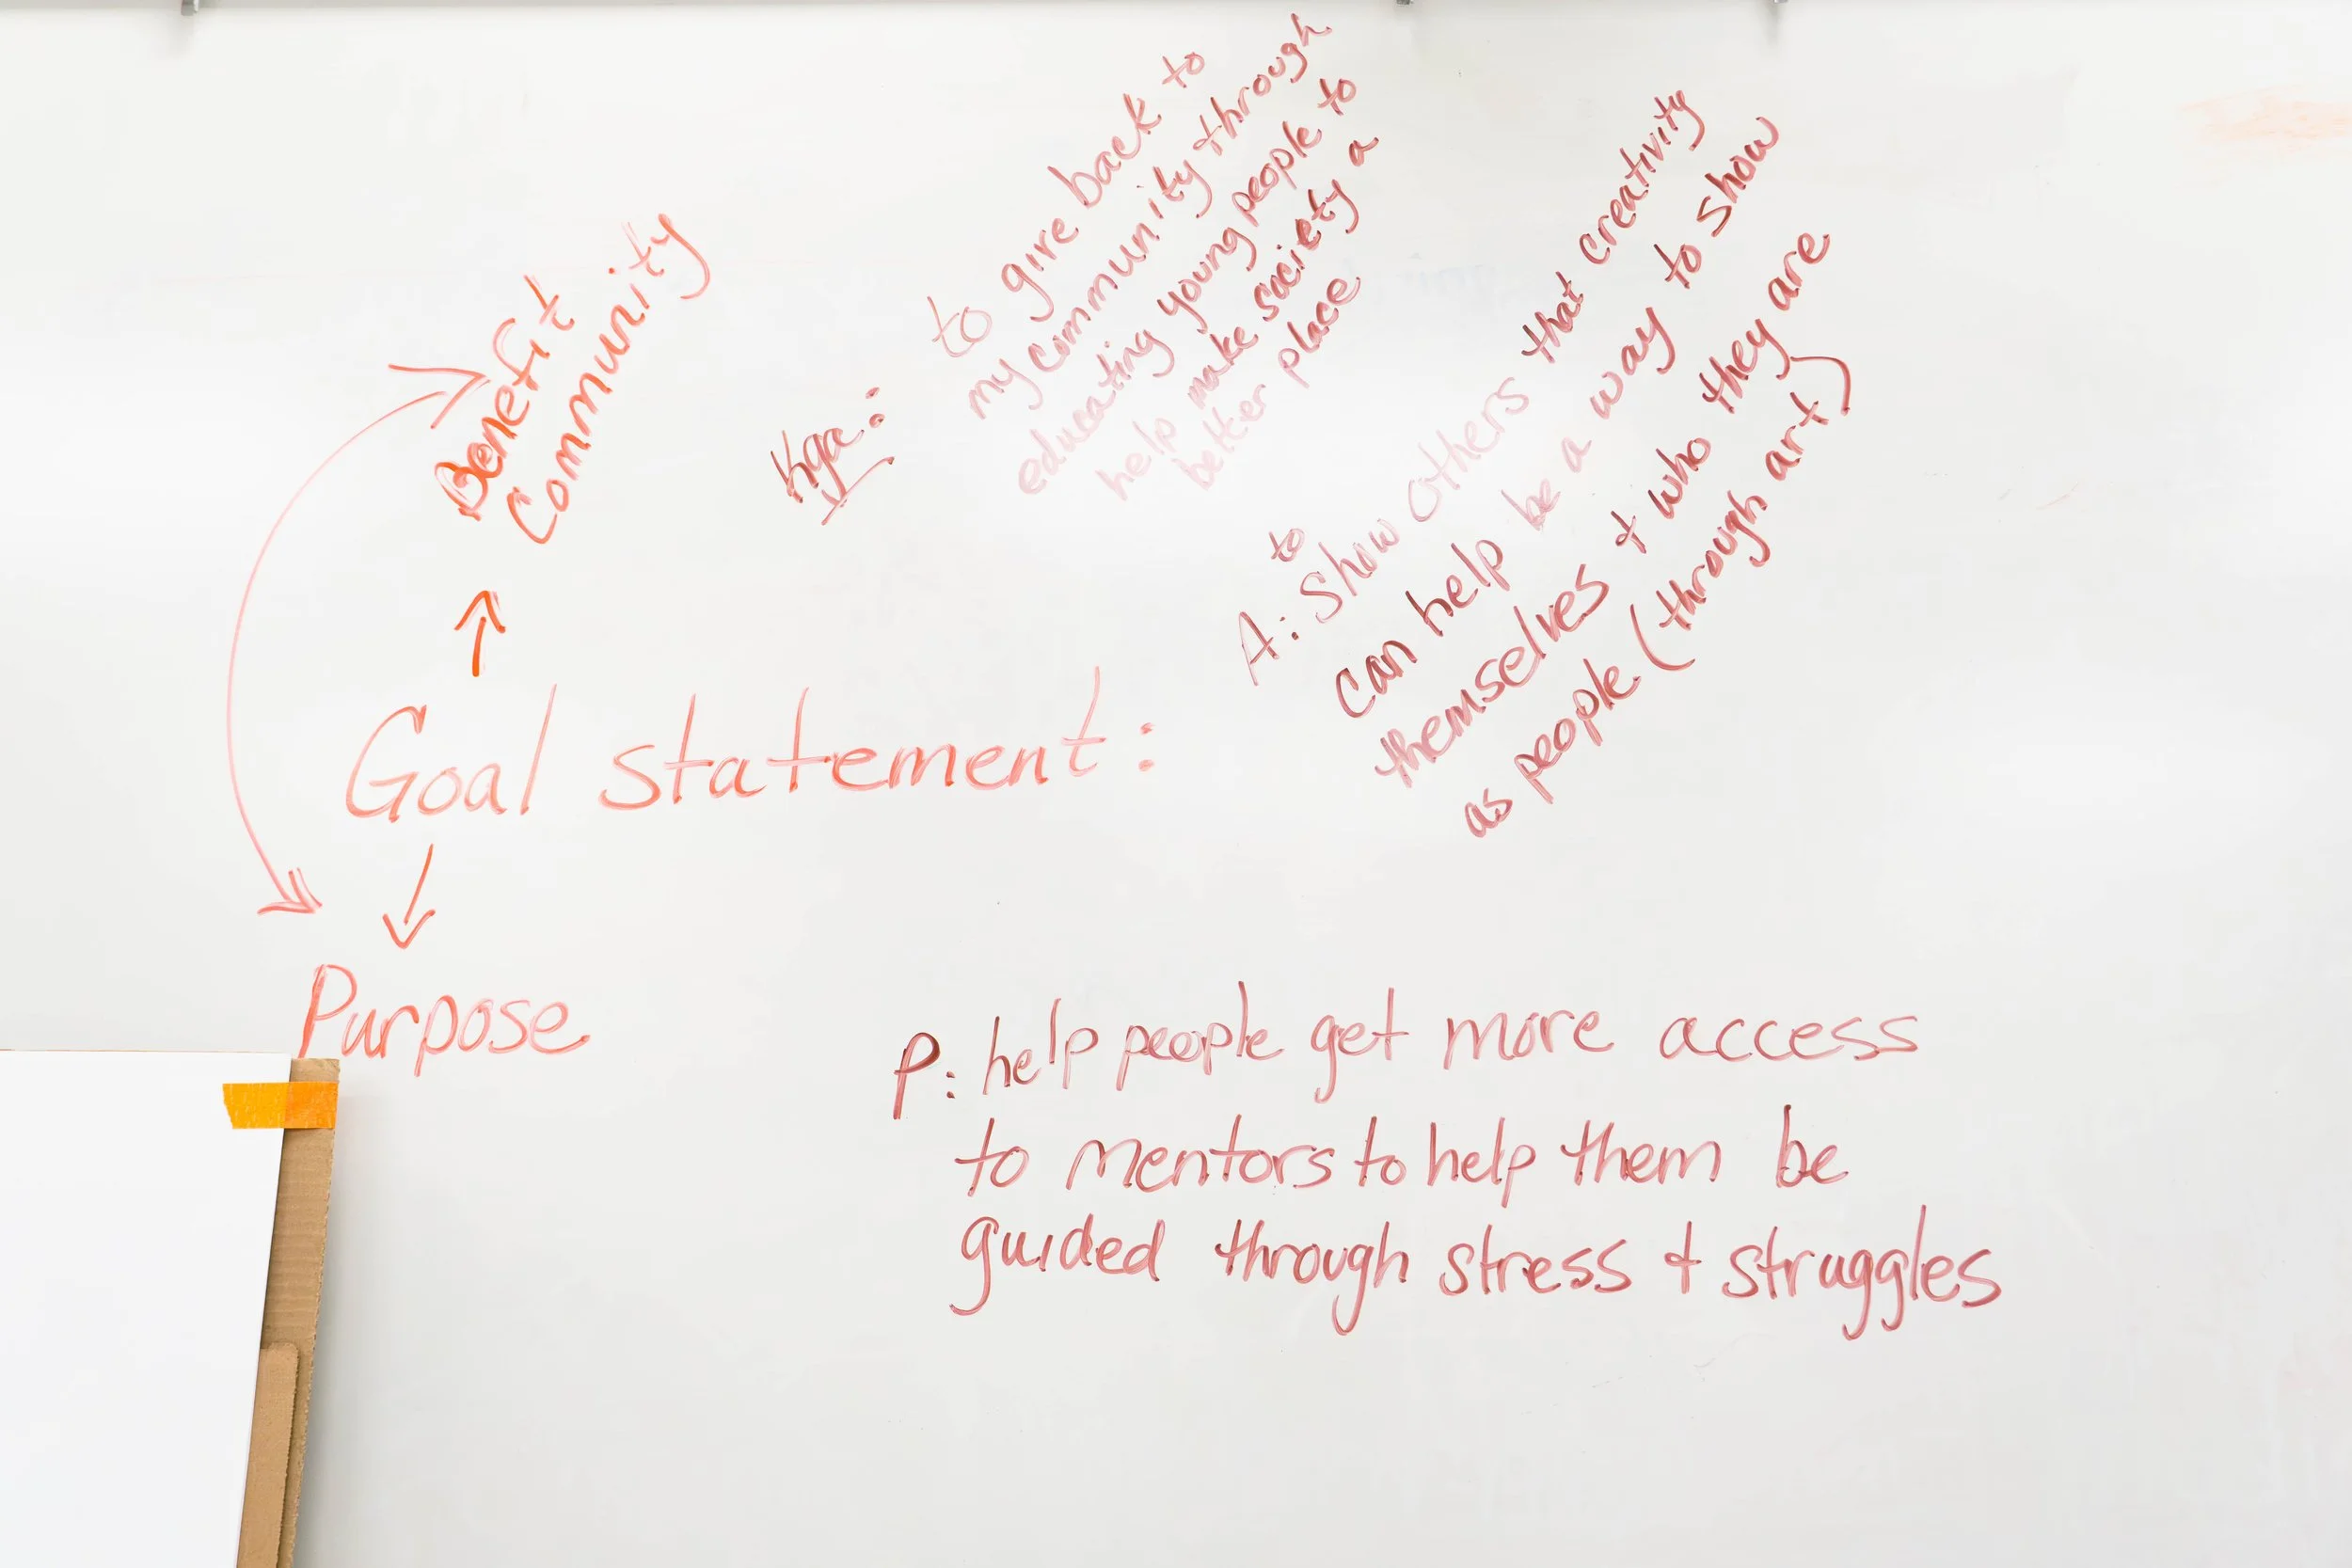 Benefit
Community
Goal statement:
Purpose
to give back to
my community through
educating young people to
help make society a
better place
A: to show others that creativity
can help be a way to show
themselves + who they are
as people (through art)
P: help people get more access
to mentors to help them be
guided through stress + struggles